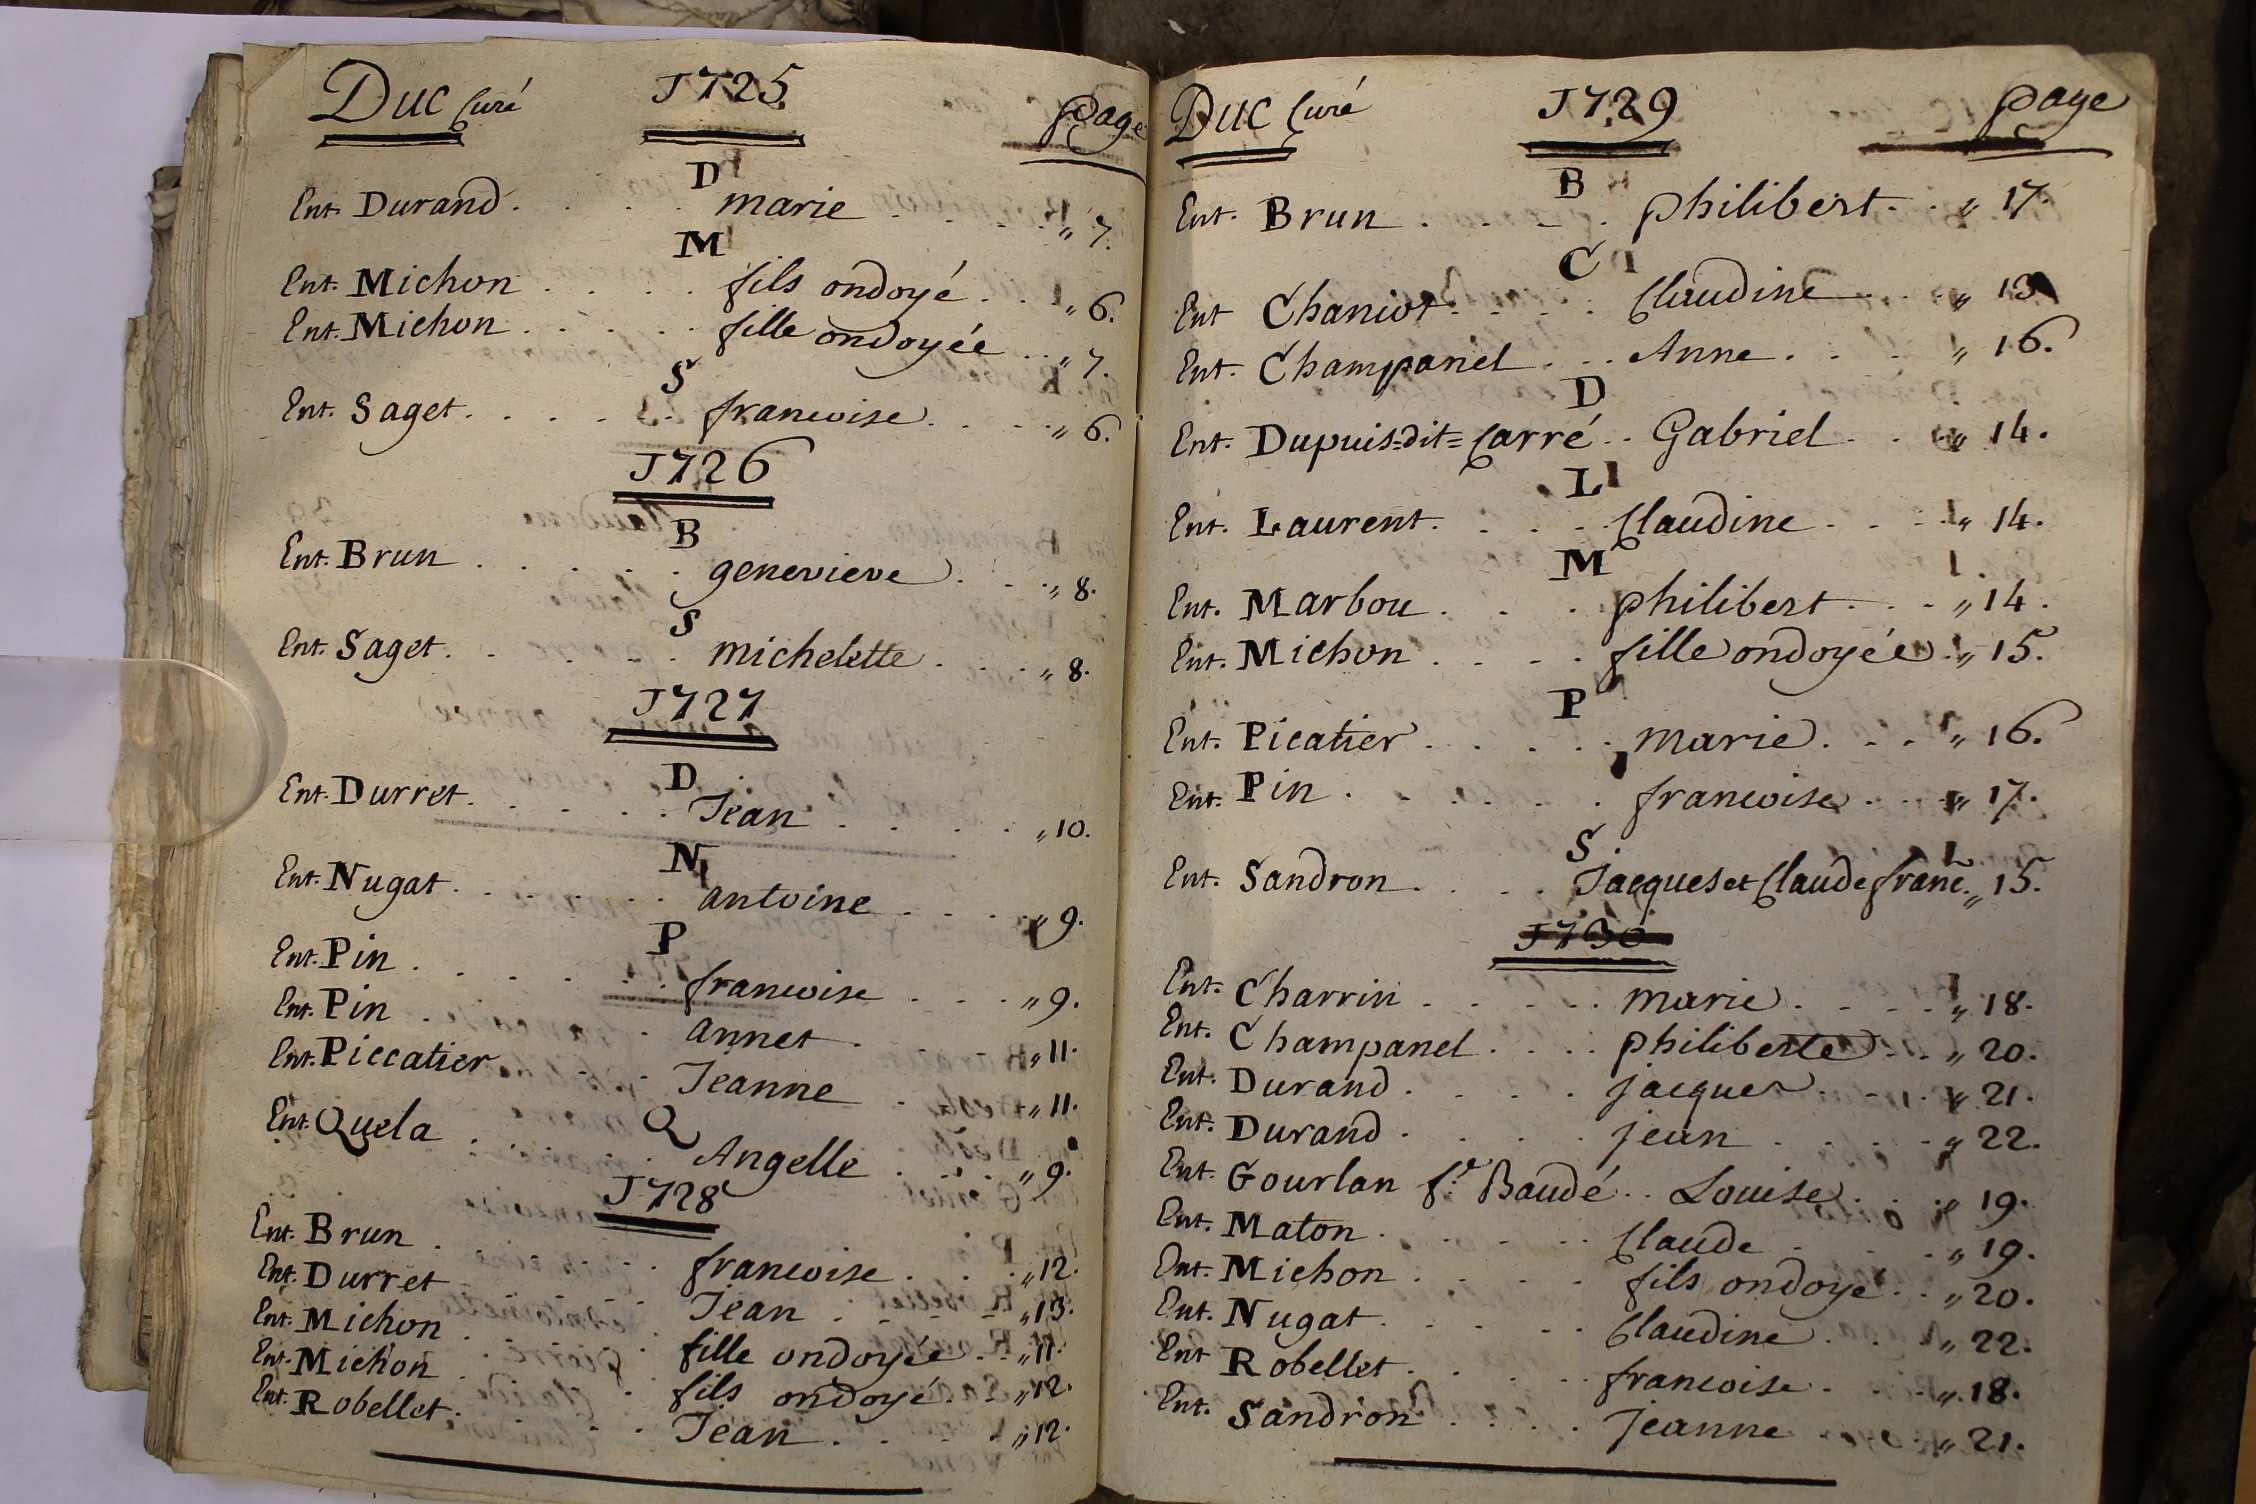 Duc Curé 1725 page
D
Ent. Durand. marie „ 7.
M
Ent. Michon fils ondoyé „ 6.
Ent. Michon fille ondoyée „ 7.
S
Ent. Saget. francoise „ 6.
1726
B
Ent. Brun genevieve „ 8.
S
Ent. Saget. michelette „ 8.
1727
D
Ent. Durret. Jean „ 10.
N
Ent. Nugat. antoine „ 9.
P
Ent. Pin francoise „ 9.
Ent. Pin annet „ 11.
Ent. Piccatier Jeanne „ 11.
Q
Ent. Quela Angelle „ 9.
1728
Ent. Brun francoise „ 12.
Ent. Durret Jean „ 13.
Ent. Michon fille ondoyée „ 11.
Ent. Michon fils ondoyé „ 12.
Ent. Robellet. Jean „ 12.
Duc Curé 1729 page
B
Ent. Brun philibert „ 17.
C
Ent Chaniot Claudine „ 13
Ent. Champanel Anne „ 16.
D
Ent. Dupuis=dit=Carré Gabriel „ 14.
L
Ent. Laurent. Claudine „ 14.
M
Ent. Marbou philibert „ 14.
Ent. Michon fille ondoyée „ 15.
P
Ent. Picatier marie „ 16.
Ent. Pin francoise „ 17.
S
Ent. Sandron Jacques et Claude franc̃. „ 15.
1730
Ent. Charrin marie „ 18.
Ent. Champanel philiberte „ 20.
Ent. Durand jacques „ 21.
Ent. Durand jean „ 22.
Ent. Gourlan f.e Baudé Louise „ 19.
Ent. Maton Claude „ 19.
Ent. Michon fils ondoyé „ 20.
Ent. Nugat Claudine „ 22.
Ent Robellet francoise „ 18.
Ent. Sandron Jeanne „ 21.